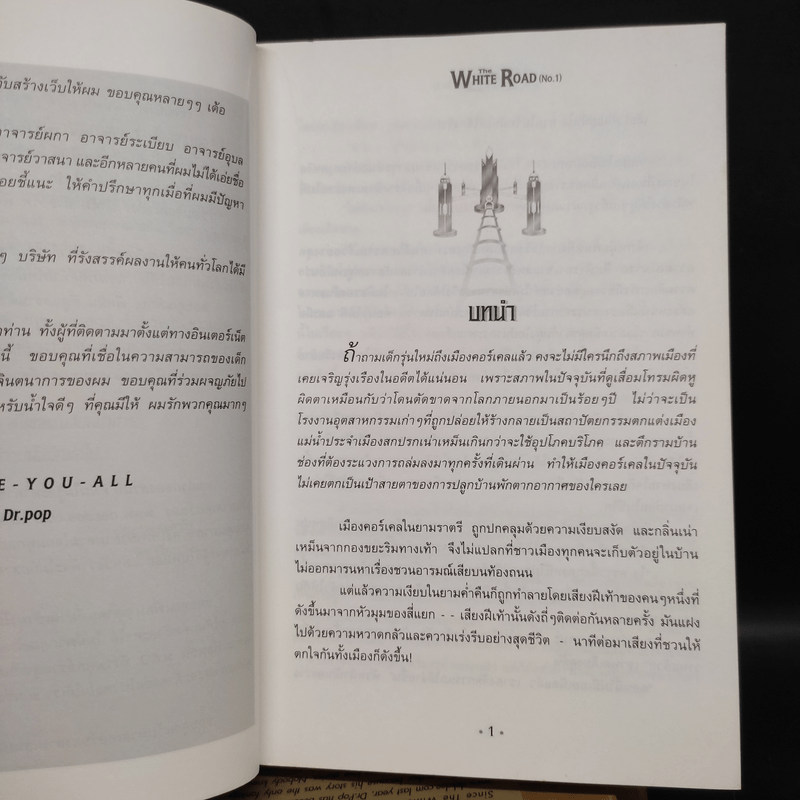 ับสร้างเว็บให้ผม ขอบคุณหลายๆๆ เด้อ
าจารย์ผกา อาจารย์ระเบียบ อาจารย์อุบล
จารย์วาสนา และอีกหลายคนที่ผมไม่ได้เอ่ยชื่อ
อยชี้แนะ ให้คำปรึกษาทุกเมื่อที่ผมมีปัญหา
ๆ บริษัท ที่รังสรรค์ผลงานให้คนทั่วโลกได้มี
าท่าน ทั้งผู้ที่ติดตามมาตั้งแต่ทางอินเตอร์เน็ต
นี้ ขอบคุณที่เชื่อในความสามารถของเด็ก
จินตนาการของผม ขอบคุณที่ร่วมผจญภัยไป
หรับน้ำใจดีๆ ที่คุณมีให้ ผมรักพวกคุณมากๆ
E-YOU-ALL
Dr.pop
The
WHITE ROAD (No.1)
บทนำ
ถ้าถามเด็กรุ่นใหม่ถึงเมืองคอร์เคลแล้ว คงจะไม่มีใครนึกถึงสภาพเมืองที่
เคยเจริญรุ่งเรืองในอดีตได้แน่นอน เพราะสภาพในปัจจุบันที่ดูเสื่อมโทรมผิดหู
ผิดตาเหมือนกับว่าโดนตัดขาดจากโลกภายนอกมาเป็นร้อยๆปี ไม่ว่าจะเป็น
โรงงานอุตสาหกรรมเก่าๆที่ถูกปล่อยให้ร้างกลายเป็นสถาปัตยกรรมตกแต่งเมือง
แม่น้ำประจำเมืองสกปรกเน่าเหม็นเกินกว่าจะใช้อุปโภคบริโภค และตึกรามบ้าน
ช่องที่ต้องระวังการถล่มลงมาทุกครั้งที่เดินผ่าน ทำให้เมืองคอร์เคลในปัจจุบัน
ไม่เคยตกเป็นเป้าสายตาของการปลูกบ้านพักตากอากาศของใครเลย
เมืองคอร์เคลในยามราตรี ถูกปกคลุมด้วยความเงียบสงัด และกลิ่นเน่า
เหม็นจากกองขยะริมทางเท้า จึงไม่แปลกที่ชาวเมืองทุกคนจะเก็บตัวอยู่ในบ้าน
ไม่ออกมารนหาเรื่องชวนอารมณ์เสียบนท้องถนน
แต่แล้วความเงียบในยามค่ำคืนก็ถูกทำลายโดยเสียงฝีเท้าของคนๆหนึ่งที่
ดังขึ้นมาจากหัวมุมของสี่แยก - - เสียงฝีเท้านั้นดังถี่ๆติดต่อกันหลายครั้ง มันแฝง
ไปด้วยความหวาดกลัวและความเร่งรีบอย่างสุดชีวิต - นาทีต่อมาเสียงที่ชวนให้
ตกใจกันทั้งเมืองก็ดังขึ้น!
• 1 •